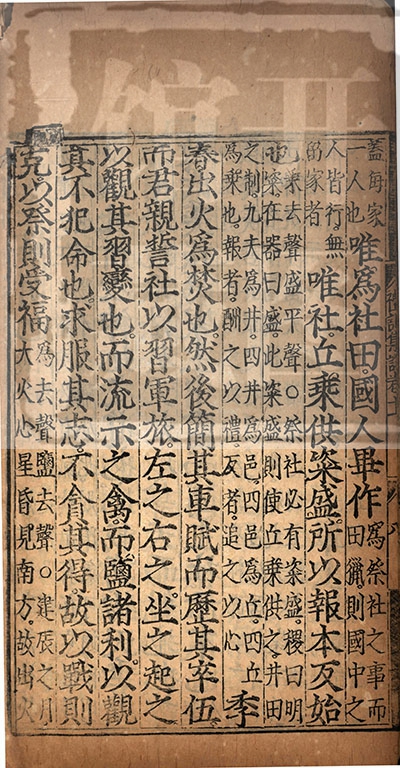 蓋每家
一人也
唯爲社田。國人畢作
爲祭社之事而
田獵則國中之
人皆行。無
留家者
唯社。丘乘供粢盛。所以報本反始
也。
乘去聲盛平聲。○祭社必有粢盛。稷曰明
粢在器曰盛。此粢盛則使丘乘供之。井田
之制。九夫爲井。四井爲邑。四邑爲丘。四丘
爲乘也。報者。酬之以禮。反者。追之以心
季
春出火爲焚也。然後簡其車賦而歷其卒伍
而君親誓社。以習軍旅。左之右之。坐之起之
以觀其習變也。而流示之禽。而鹽諸利。以觀
其不犯命也。求服其志。不貪其得。故以戰則
克。以祭則受福
爲去聲鹽去聲。○建辰之月
大火心星昏見南方。故出火